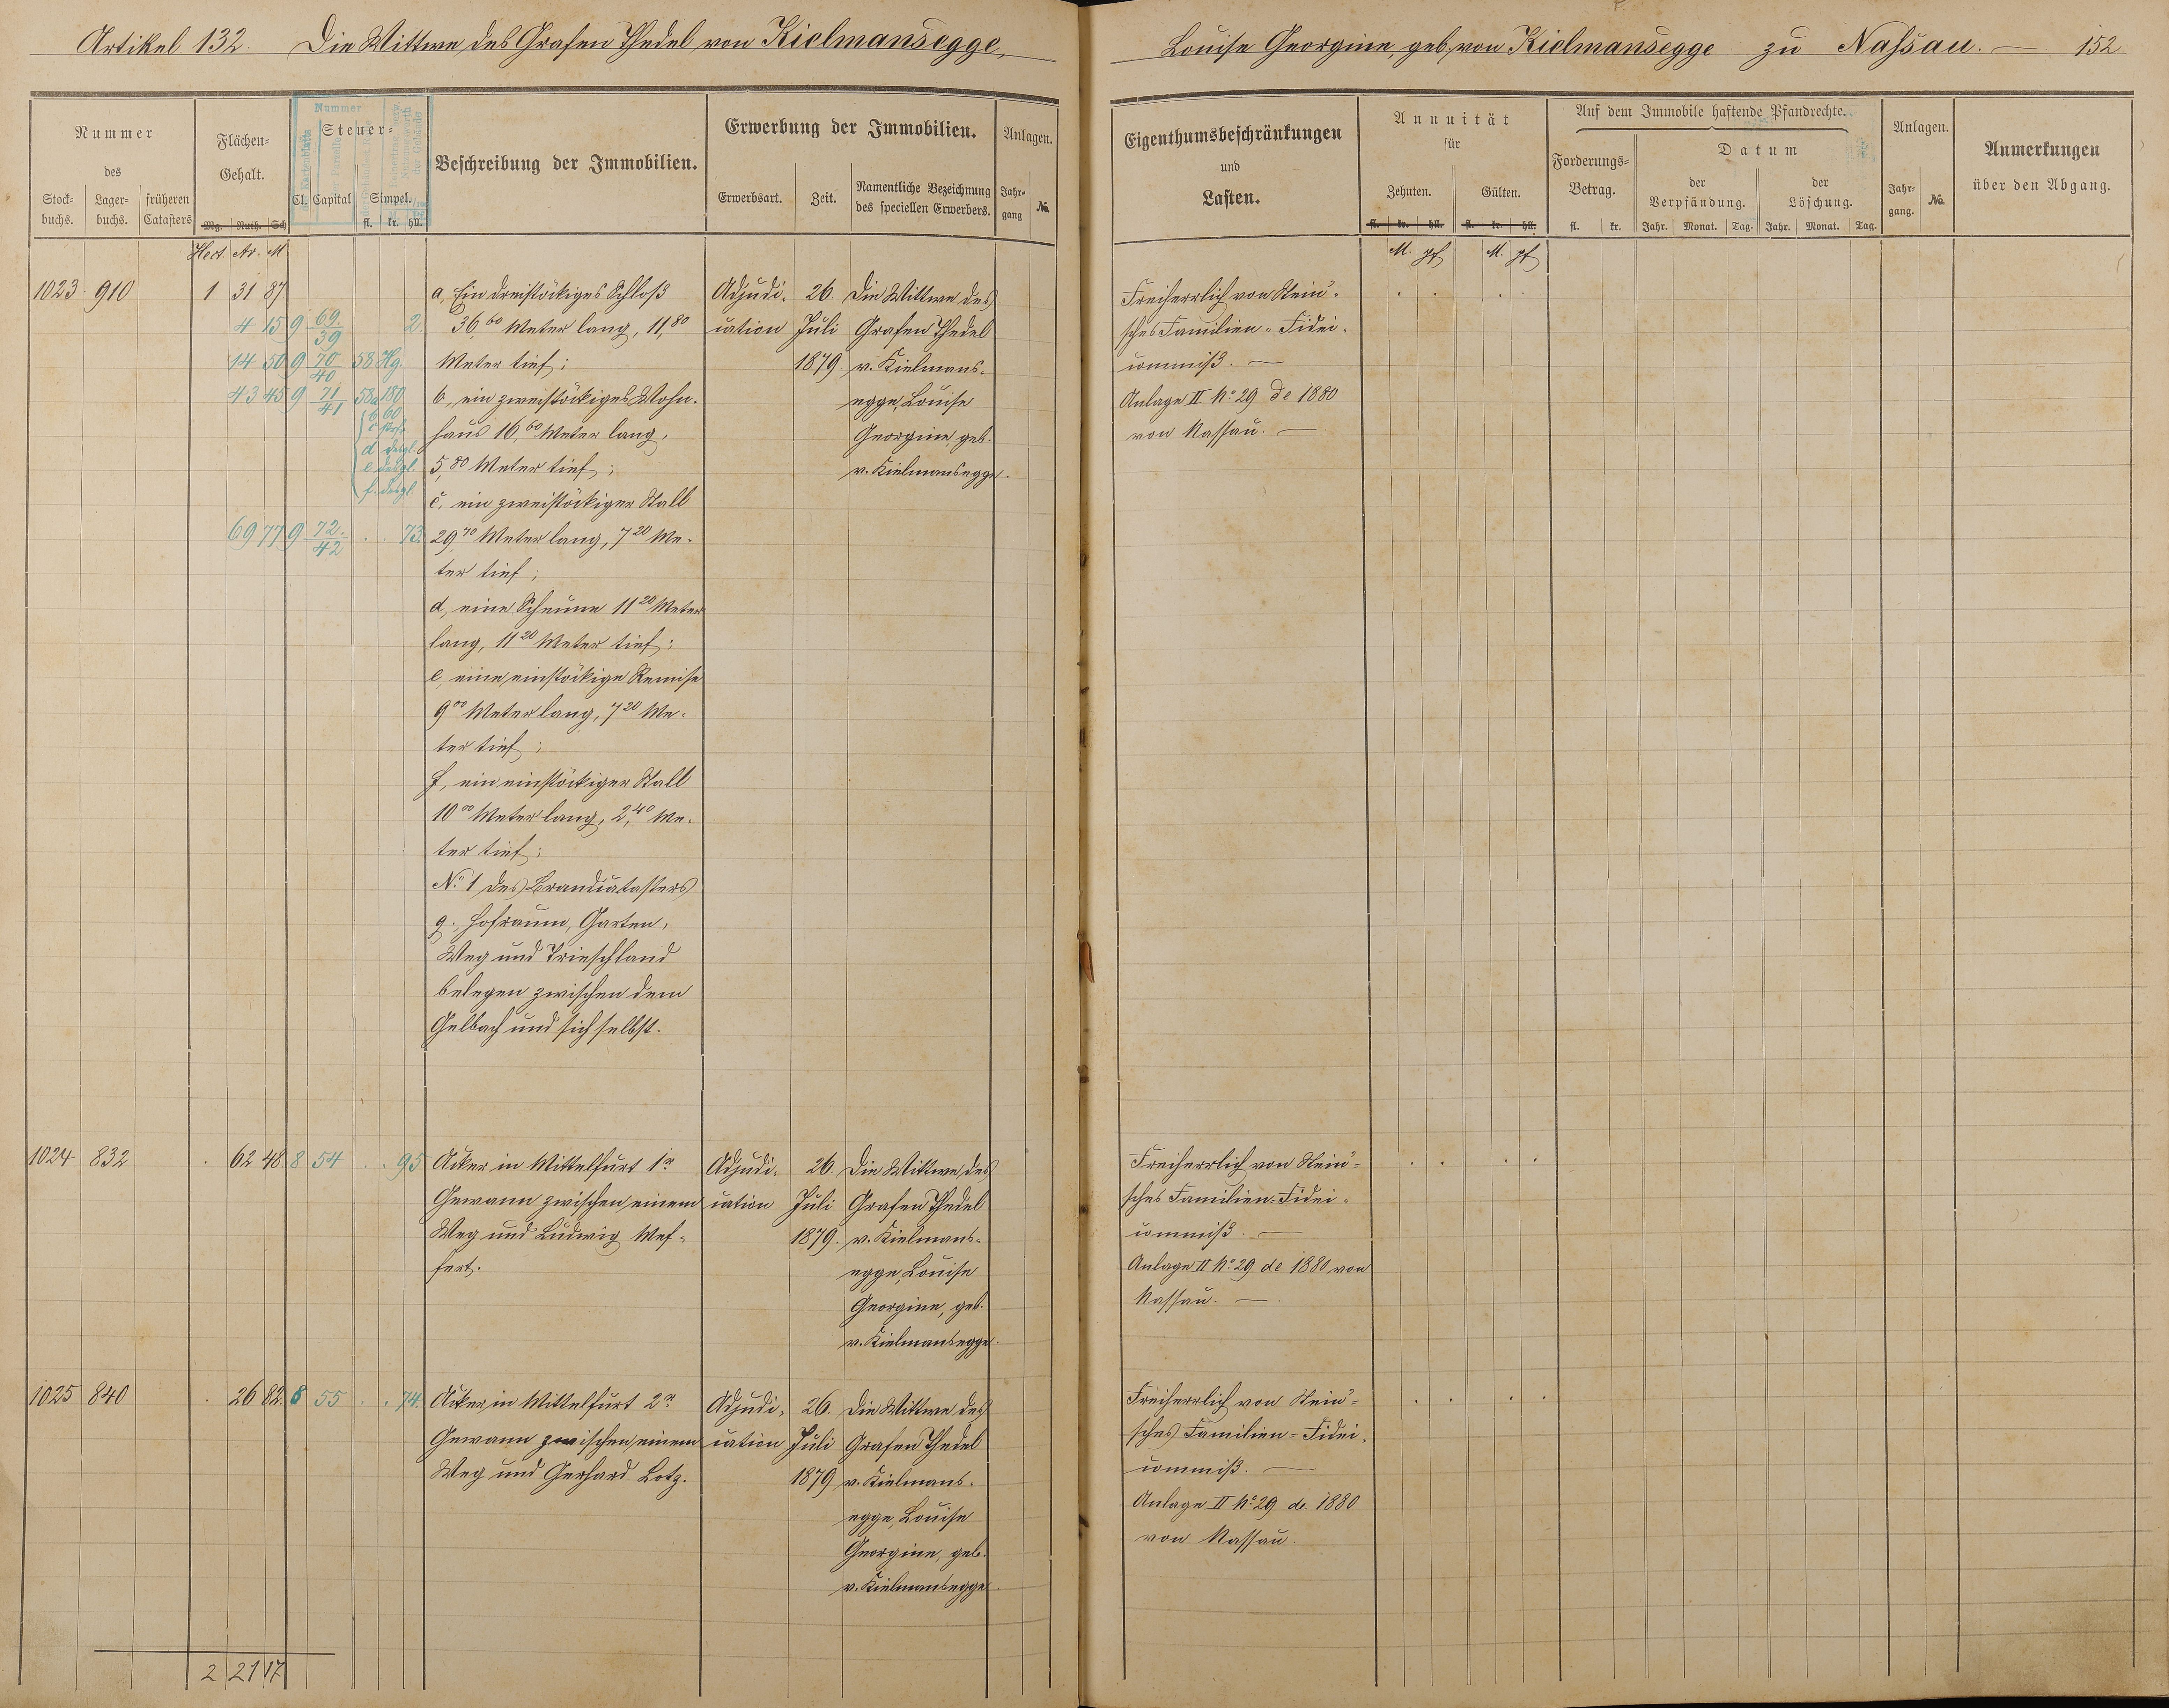 Artikel 132. Die Wittwe des Grafen Thedel von Kielmansegge,
Louise Georgine, geb. von Kielmansegge zu Nassau. — 152
Nummer
des
Stock-
buchs.
Lager-
buchs.
früheren
Catasters
Flächen-
Gehalt.
Mg. Ruth. Sch
Nummer
Steuer-
Cl. Capital Simpel.
fl. kr. hll.
Beschreibung der Immobilien.
Erwerbung der Immobilien.
Erwerbsart.
Zeit.
Namentliche Bezeichnung
des speciellen Erwerbers.
Anlagen.
Jahr-
gang
No.
Hect. Ar. M.
1023 910 1 31 87
4 15 9 69./39 2.
14 50 9 70/40 58 Hg.
43 45 9 71/41 58a 180
b 60
d desgl.
e desgl.
f. desgl
69 77 9 72./42 . . 73.
a, Ein dreistöckiges Schloß
36,60 Meter lang, 11,80
Meter tief;
b, ein zweistöckiges Wohn-
haus 16,60 Meter lang,
5,80 Meter tief;
c, ein zweistöckiger Stall
29,70 Meter lang, 7 20 Me-
ter tief;
d, eine Scheune 11 20 Meter
lang, 11 20 Meter tief;
e, eine einstöckige Remise
9 00 Meter lang, 7 20 Me-
ter tief;
f, ein einstöckiger Stall
10 00 Meter lang, 2,40 Me-
ter tief;
No. 1 des Brandcatasters
g., Hofraum, Garten,
Weg und Trieschland
belegen zwischen dem
Gelbach und sich selbst.
Adjudi-
cation
26.
Juli
1879
Die Wittwe des
Grafen Thedel
v. Kielmans-
egge, Louise
Georgine, geb.
v. Kielmansegge.
1024 832 . 62 48 8 54 . . 95
Acker in Mittelfurt 1r
Gewann zwischen einem
Weg und Ludwig Mef-
fert.
Adjudi-
cation
26.
Juli
1879.
Die Wittwe des
Grafen Thedel
v. Kielmans-
egge, Louise
Georgine, geb.
v. Kielmansegge.
1025 840 . 26 82. 8 55 . . 74.
Acker, in Mittelfurt 2r
Gewann zwischen einem
Weg und Gerhard Lotz.
Adjudi-
cation
26.
Juli
1879
Die Wittwe des
Grafen Thedel
v. Kielmans-
egge, Louise
Georgine, geb.
v. Kielmansegge.
2 21 17
Eigenthumsbeschränkungen
und
Lasten.
Annuität
für
Zehnten.
Gülten.
fl. kr. hll. fl. kr. hll.
Auf dem Immobile haftende Pfandrechte.
Forderungs-
Betrag.
fl. kr.
Datum
der
Verpfändung.
der
Löschung.
Jahr. Monat. Tag. Jahr. Monat. Tag.
Anlagen.
Jahr-
gang.
No.
Anmerkungen
über den Abgang.
M. pf M. pf
Freiherrlich von Stein'-
sches Familien-Fidei-
commiß. —
Anlage II No. 29 de 1880
von Nassau. —
Freiherrlich von Stein'-
sches Familien-Fidei-
commiß. —
Anlage II No. 29 de 1880 von
Nassau. —
Freiherrlich von Stein'-
sches Familien-Fidei-
commiß. —
Anlage II No. 29 de 1880
von Nassau.